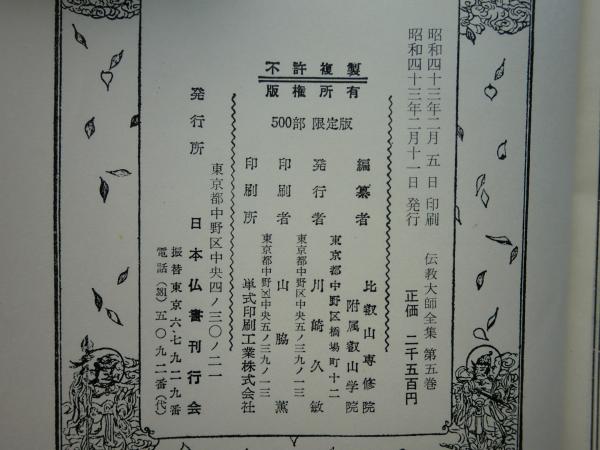 昭和四十三年二月五日 印刷
昭和四十三年二月十一日 発行
伝教大師全集 第五巻
正価 二千五百円
不許複製
版権所有
500部 限定版
編纂者 比叡山専修院
附属叡山学院
東京都中野区橋場町十二
発行者 川崎久敏
東京都中野区中央五ノ三九ノ一三
印刷者 山脇薫
東京都中野区中央五ノ三九ノ一三
印刷所 単式印刷工業株式会社
東京都中野区中央四ノ三〇ノ二一
発行所 日本仏書刊行会
振替東京六・七九二九番
電話 五〇九二番(代)